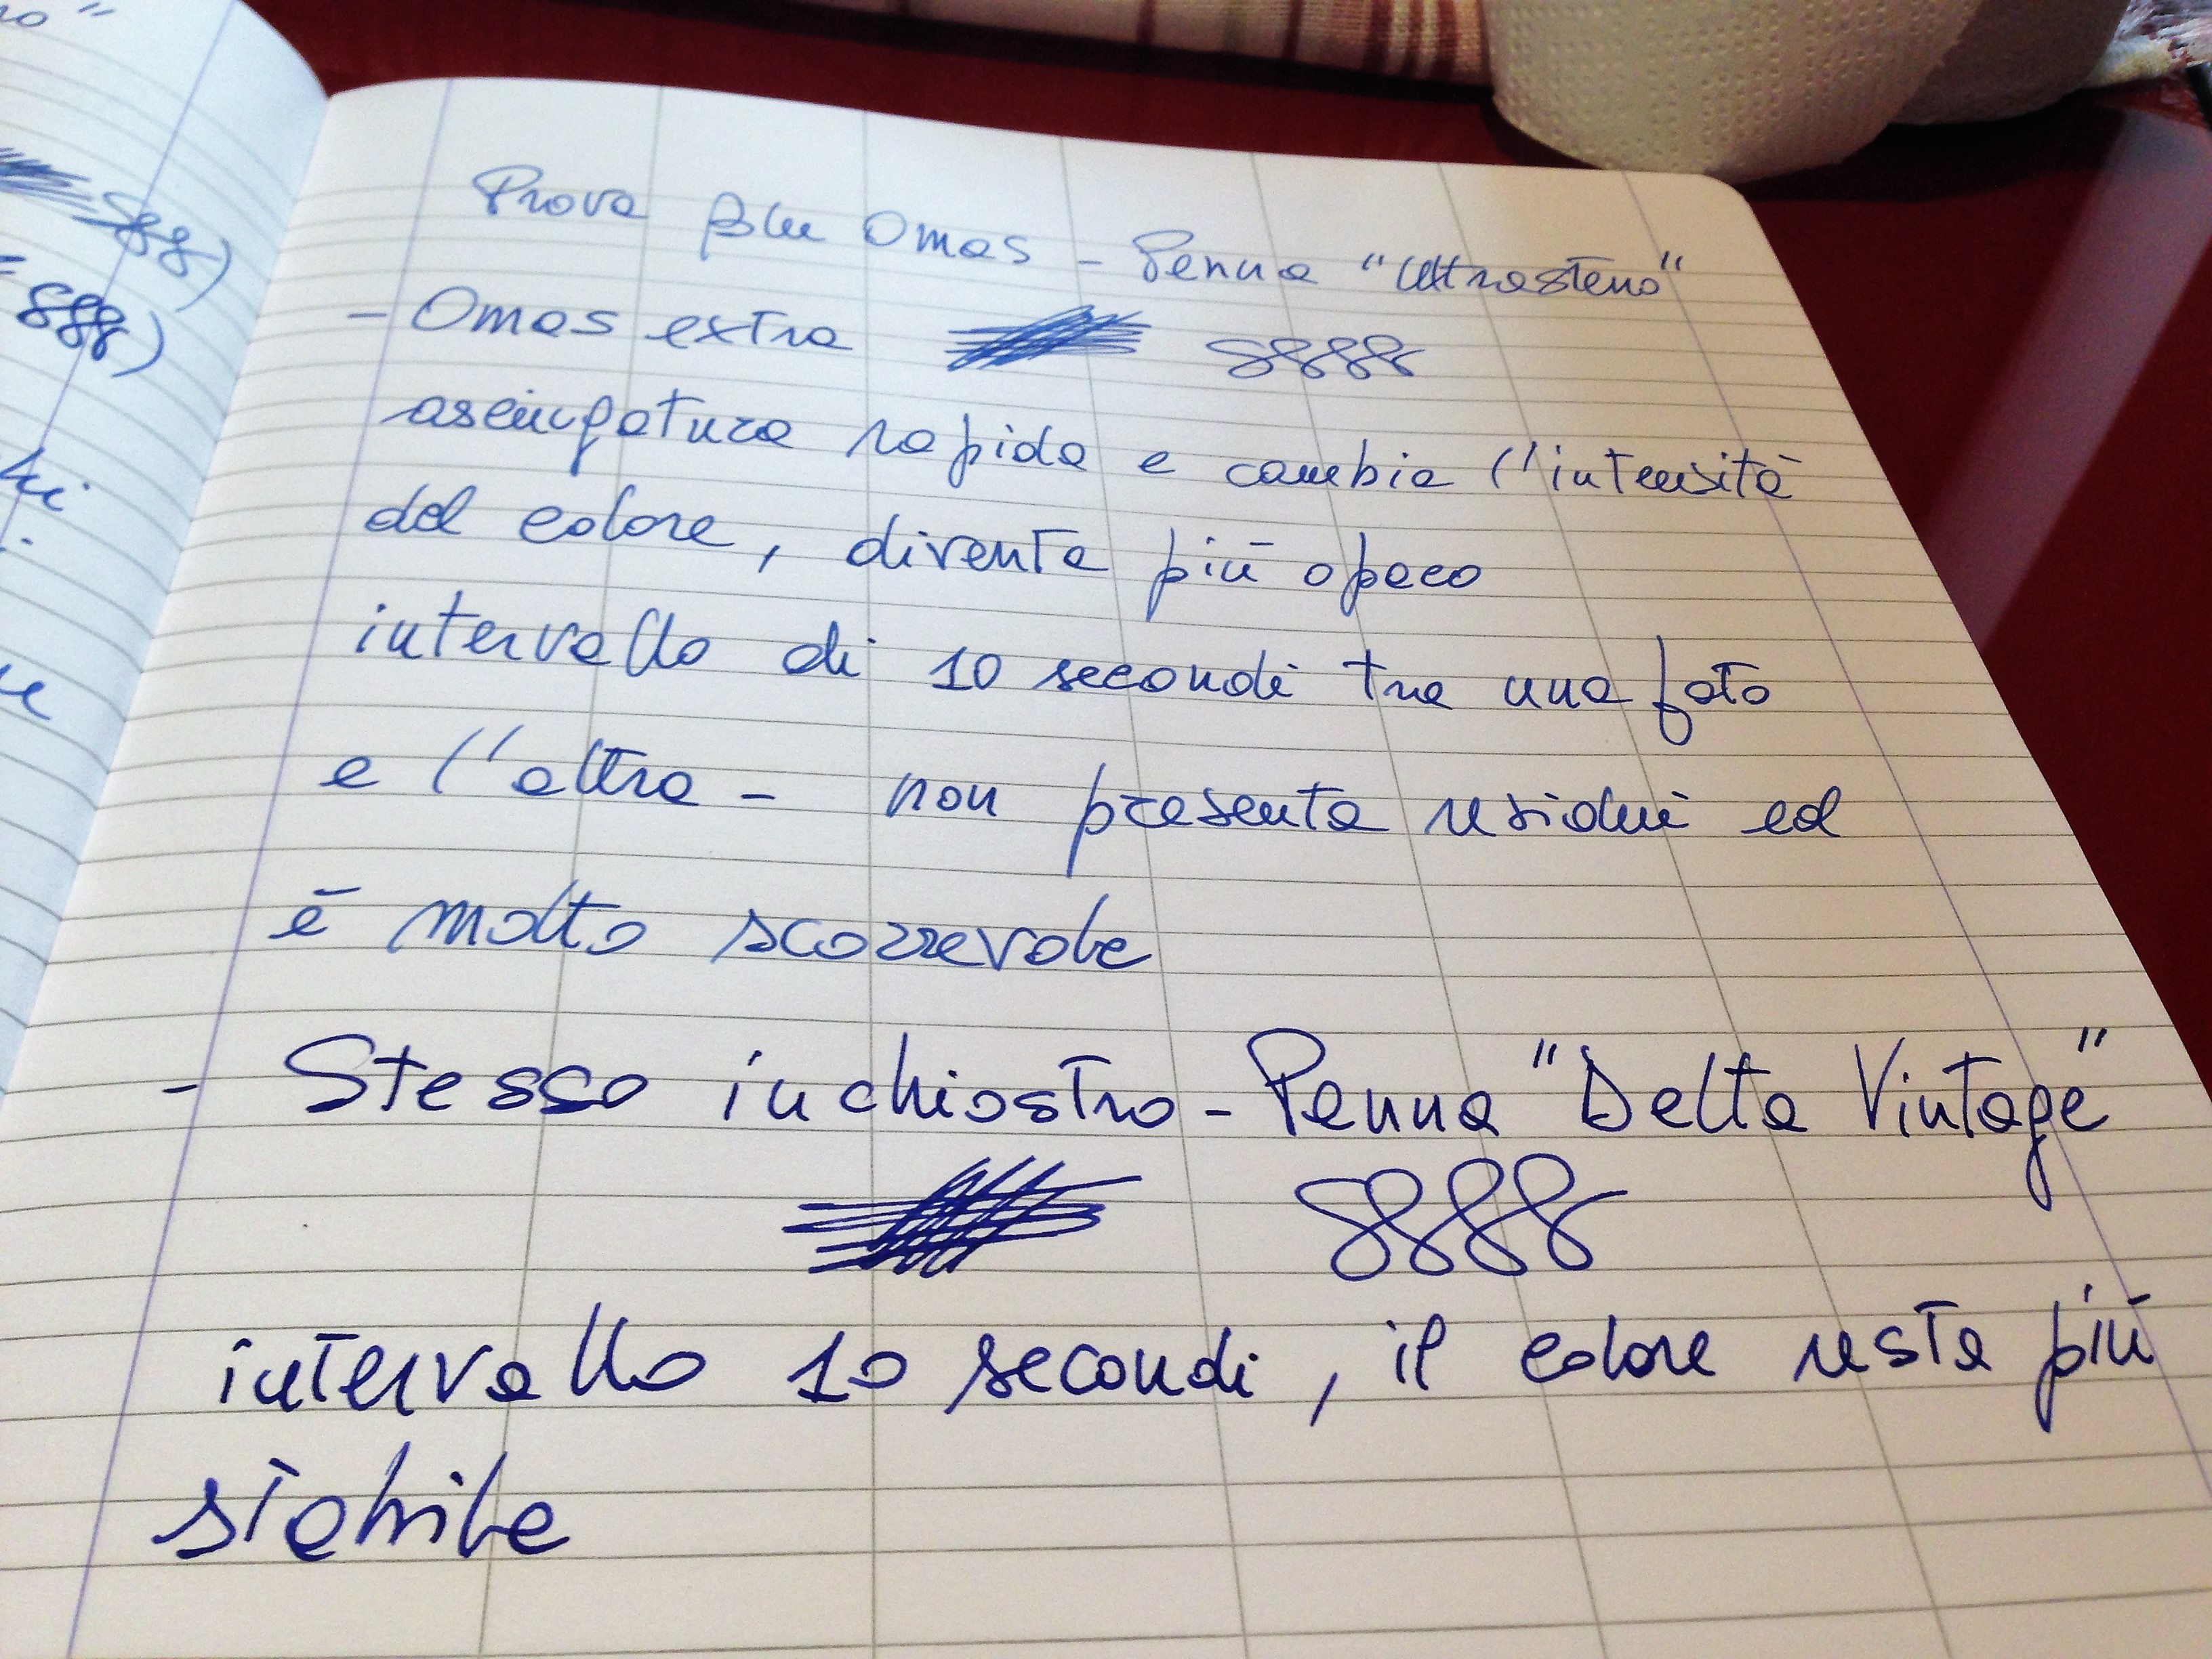 Prova blu Omas - Penna "Ultrasteno"
- Omas extra 8888
asciugatura rapida e cambia l'intensità
del colore, diventa più opaco
intervallo di 10 secondi tra una foto
e l'altra - non presenta residui ed
è molto scorrevole
- Stesso inchiostro - Penna "Delta Vintage"
888
intervallo 10 secondi, il colore resta più
stabile